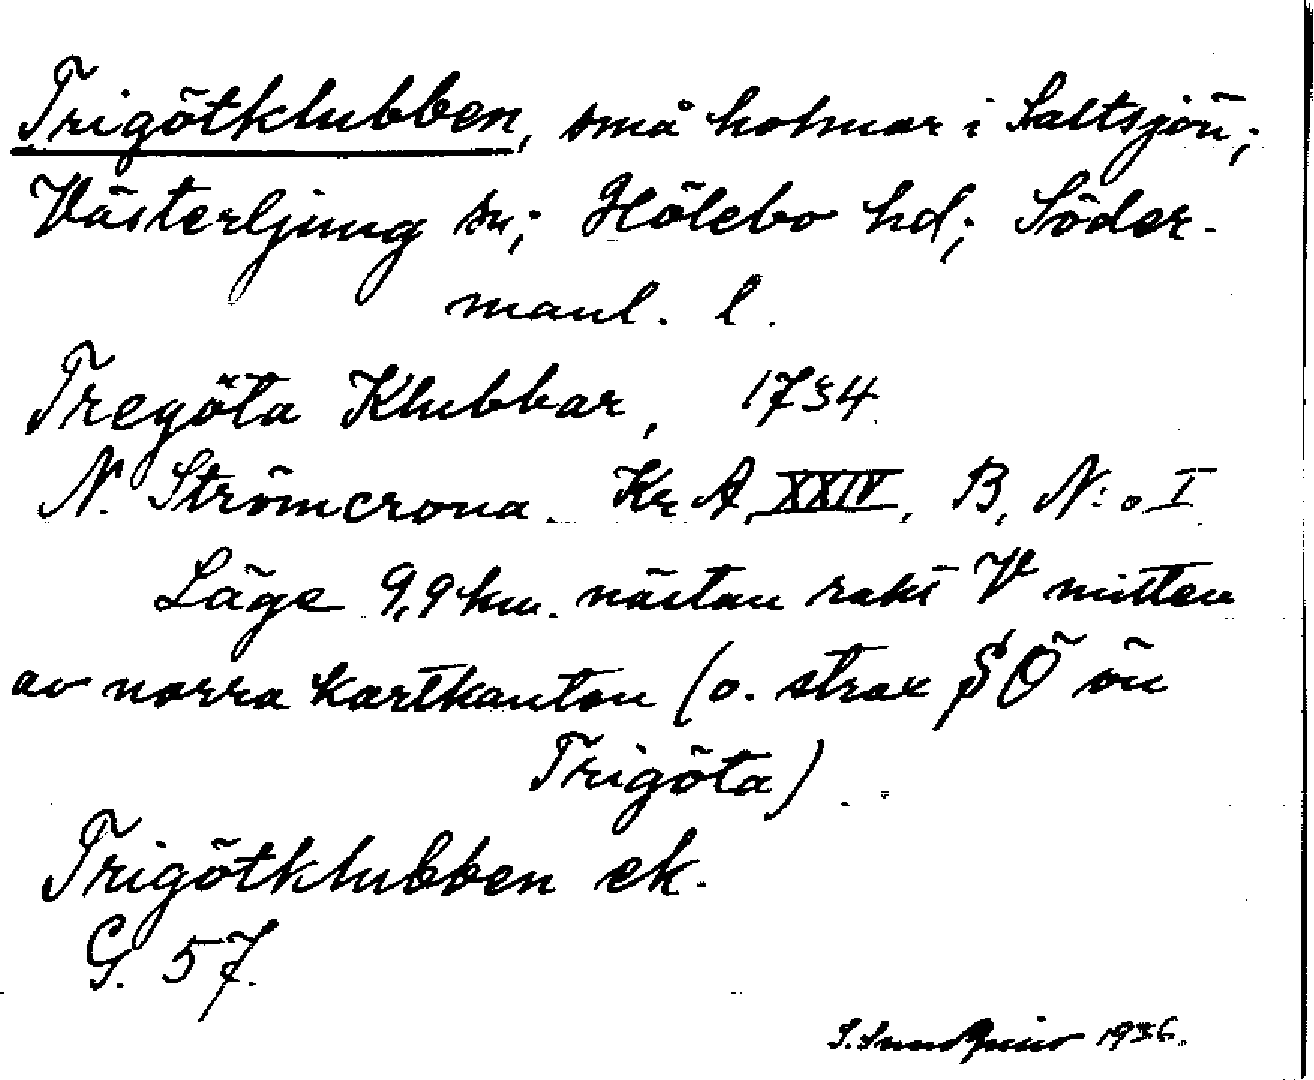 Trigötklubben, små holmar i Saltsjön;
Västerljung sn; Hölebo hd; Söder-
manl. l.
Tregöta Klubbar, 1734
N. Strömcrona. Kr A, XXIV, B, N:o I
Läge 9,9 km. nästan rakt V mitten
av norra kartkanten (o. strax SÖ ön
Trigöta).
Trigötklubben ek.
G. 57.
S. 1936.